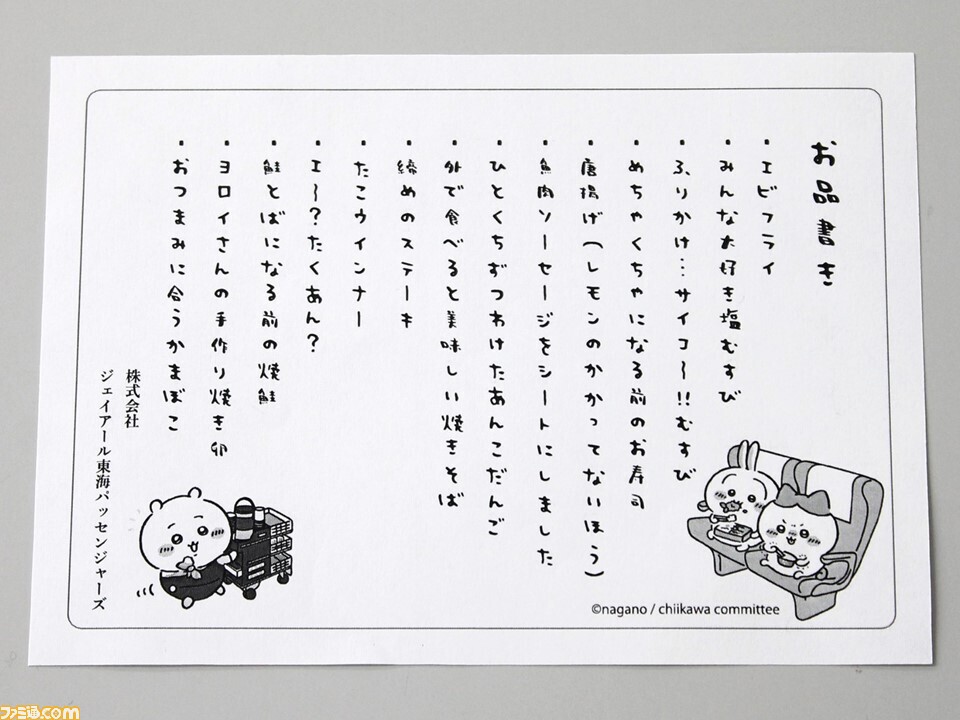 お品書き
・エビフライ
・みんな大好き塩むすび
・ふりかけ…サイコ〜!!むすび
・めちゃくちゃになる前のお寿司
・唐揚げ(レモンのかかってないほう)
・魚肉ソーセージをシートにしました
・ひとくちずつわけたあんこだんご
・外で食べると美味しい焼きそば
・締めのステーキ
・たこウインナー
・エ〜?たくあん?
・鮭とばになる前の焼鮭
・ヨロイさんの手作り焼き卵
・おつまみに合うかまぼこ
株式会社
ジェイアール東海パッセンジャーズ
©nagano / chiikawa committee
ファミ通.com